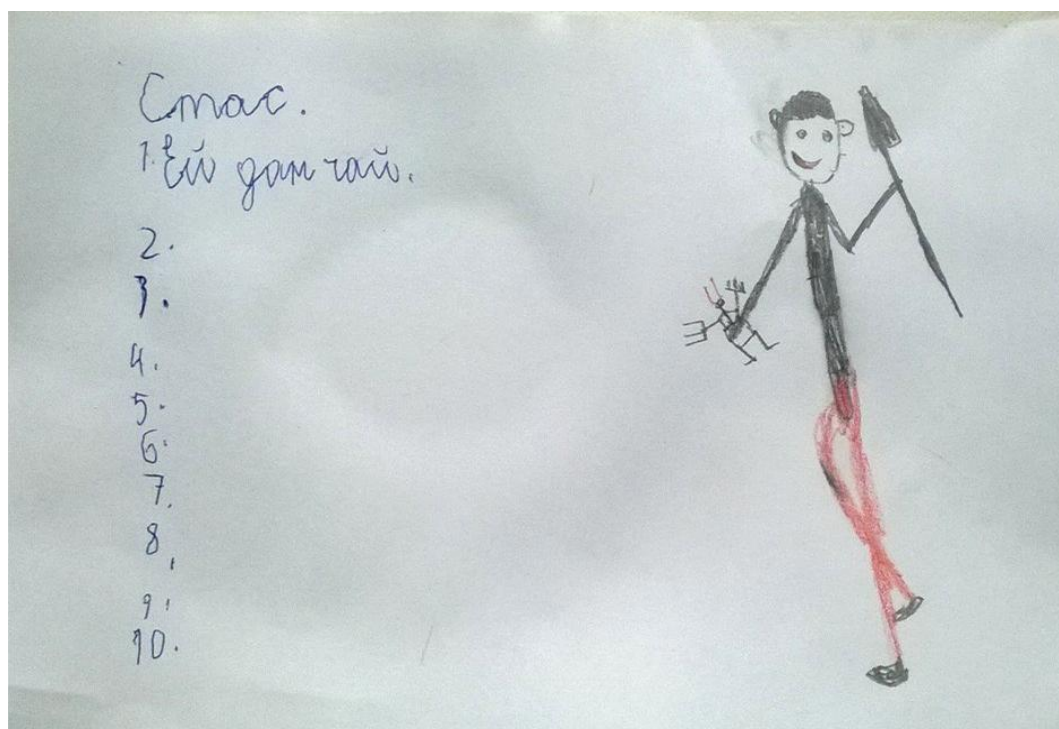 Стас.
1. Ей дам чай.
2.
3.
4.
5.
6.
7.
8.
9.
10.